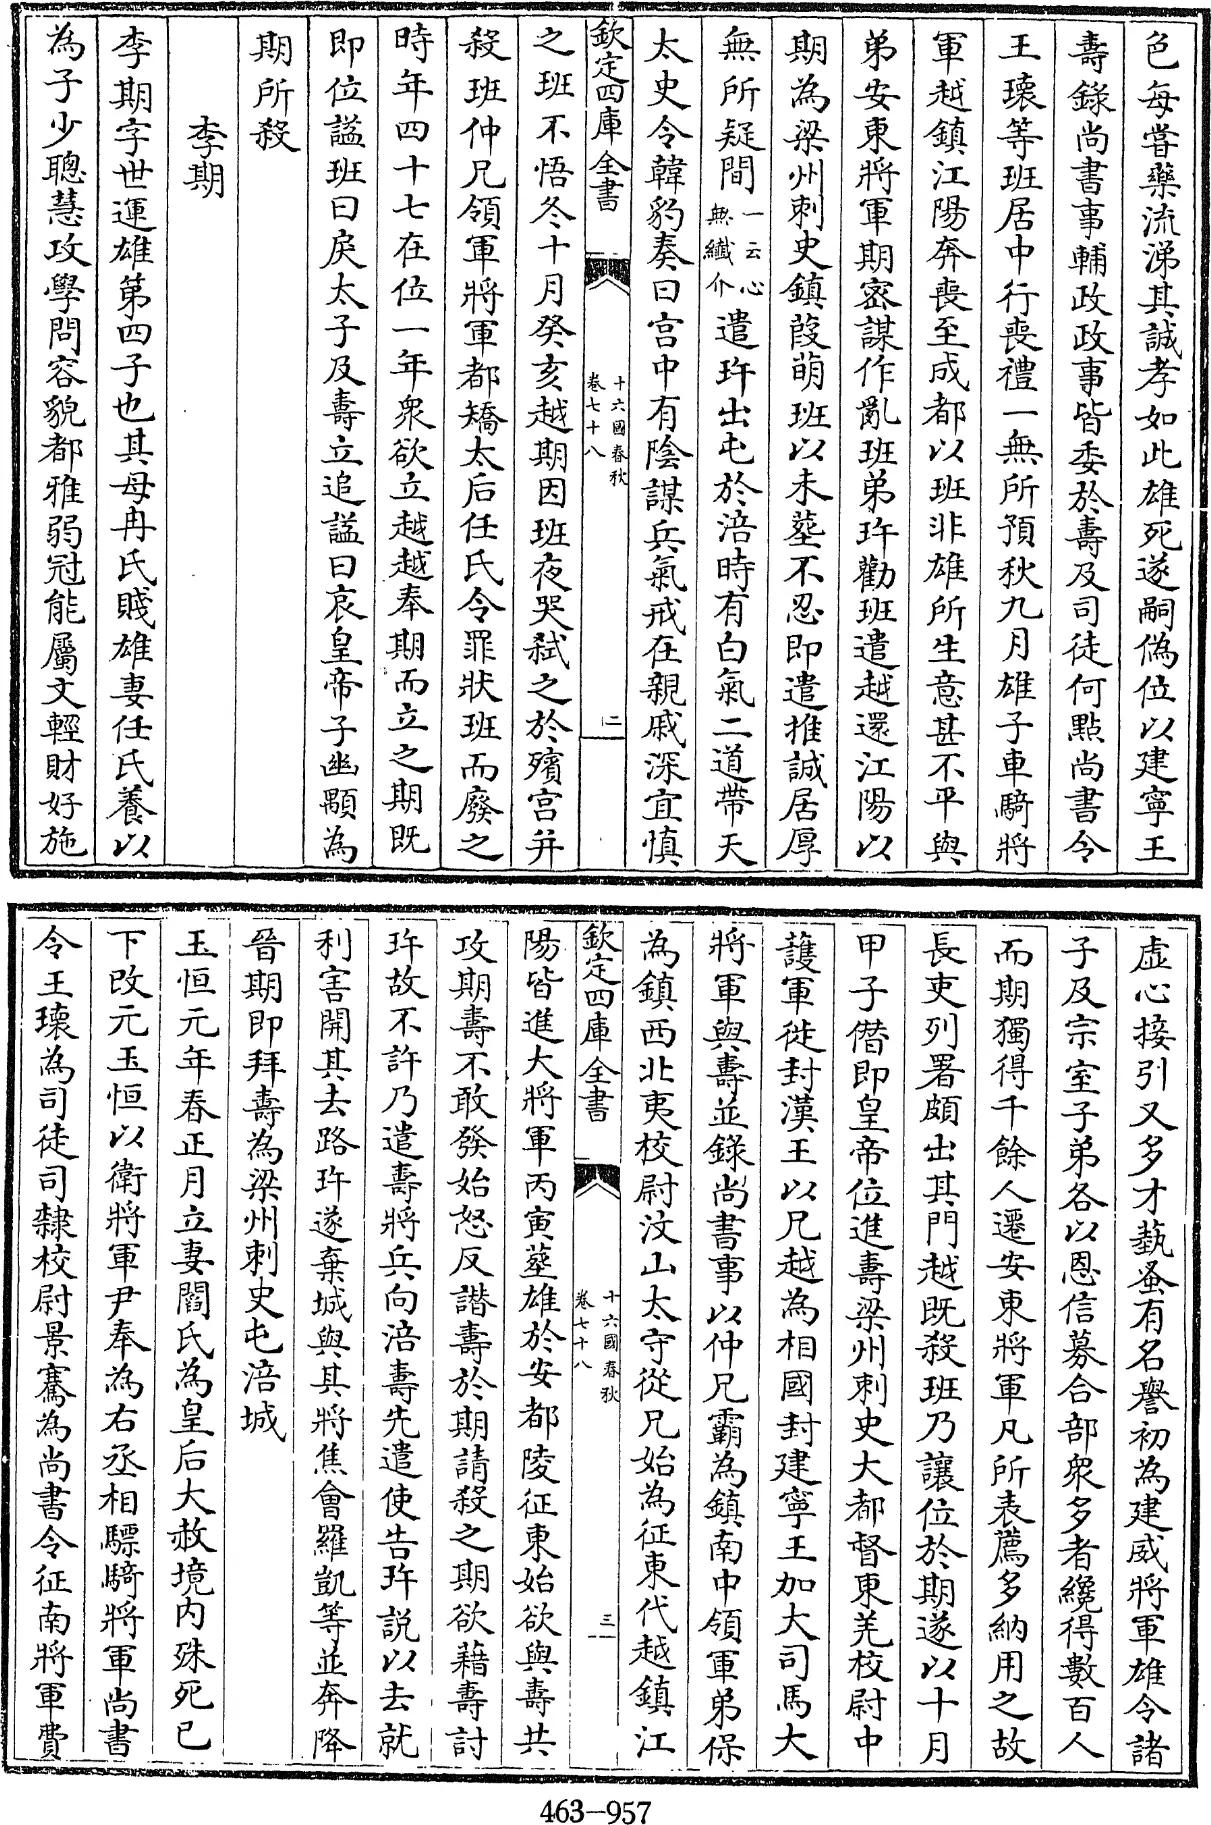 色每嘗藥流涕其誠孝如此雄死遂嗣偽位以建寧王
壽錄尚書事輔政政事皆委於壽及司徒何點尚書令
王瓌等班居中行喪禮一無所預秋九月雄子車騎將
軍越鎮江陽奔喪至成都以班非雄所生意甚不平與
弟安東將軍期密謀作亂班弟玝勸班遣越還江陽以
期為梁州刺史鎮葭萌班以未塟不忍即遣推誠居厚
無所疑間一云心無纖介遣玝出屯於涪時有白氣二道帶天
太史令韓豹奏曰宮中有陰謀兵氣戒在親戚深宜慎
欽定四庫全書
十六國春秋
卷七十八
二
之班不悟冬十月癸亥越期因班夜哭弑之於殯宮并
殺班仲兄領軍將軍都矯太后任氏令罪狀班而廢之
時年四十七在位一年衆欲立越越奉期而立之期既
即位謚班曰戾太子及壽立追謚曰哀皇帝子幽顒為
期所殺
李期
李期字世運雄第四子也其母冉氏賤雄妻任氏養以
為子少聰慧攻學問容貌都雅弱冠能屬文輕財好施
虛心接引又多才藝蚤有名譽初為建威將軍雄令諸
子及宗室子弟各以恩信募合部衆多者纔得數百人
而期獨得千餘人遷安東將軍凡所表薦多納用之故
長吏列署頗出其門越既殺班乃讓位於期遂以十月
甲子僭即皇帝位進壽梁州刺史大都督東羌校尉中
護軍徙封漢王以兄越為相國封建寧王加大司馬大
將軍與壽並錄尚書事以仲兄霸為鎮南中領軍弟保
為鎮西北夷校尉汶山太守從兄始為征東代越鎮江
欽定四庫全書
十六國春秋
卷七十八
三
陽皆進大將軍丙寅塟雄於安都陵征東始欲與壽共
攻期壽不敢發始怒反譖壽於期請殺之期欲藉壽討
玝故不許乃遣壽將兵向涪壽先遣使告玝説以去就
利害開其去路玝遂棄城與其將焦會羅凱等並奔降
晉期即拜壽為梁州刺史屯涪城
玉恒元年春正月立妻閻氏為皇后大赦境内殊死已
下改元玉恒以衛將軍尹奉為右丞相驃騎將軍尚書
令王瓌為司徒司隸校尉景騫為尚書令征南將軍費
463-957